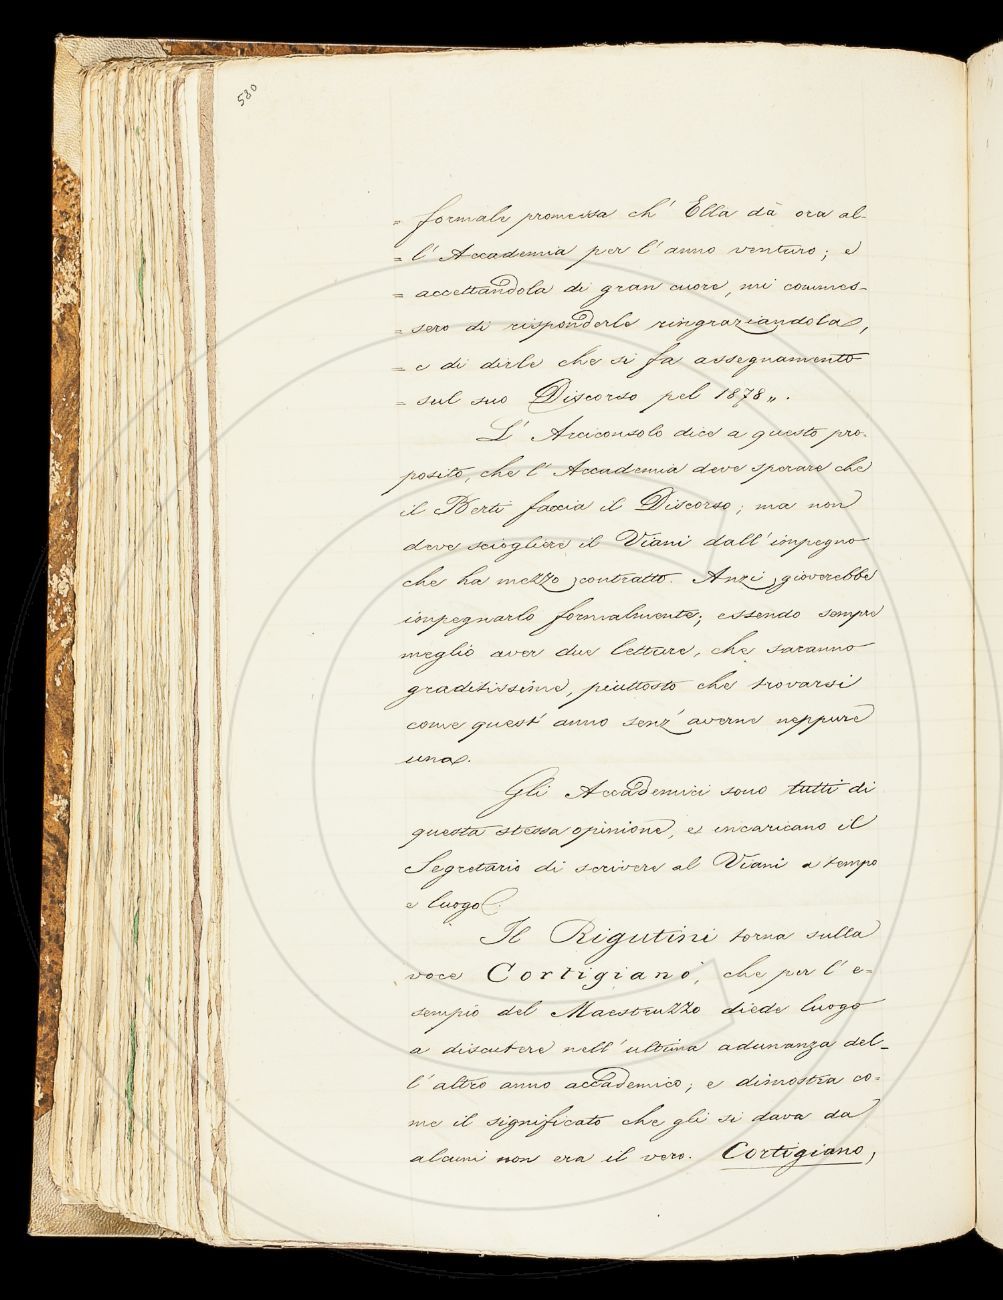 580
= formale promessa ch' Ella dà ora al-
= l' Accademia per l' anno venturo; e
= accettandola di gran cuore, mi commes-
= sero di risponderle ringraziandola,
= e di dirle che si fa assegnamento
= sul suo Discorso pel 1878 „.
L' Arciconsolo dice a questo pro-
posito, che l' Accademia deve sperare che
il Berti faccia il Discorso; ma non
deve sciogliere il Viani dall' impegno
che ha mezzo contratto. Anzi gioverebbe
impegnarlo formalmente; essendo sempre
meglio aver due letture, che saranno
graditissime, piuttosto che trovarsi
come quest' anno senz' averne neppure
una.
Gli Accademici sono tutti di
questa stessa opinione, e incaricano il
Segretario di scrivere al Viani a tempo
e luogo.
Il Rigutini torna sulla
voce Cortigiano, che per l' e-
sempio del Maestruzzo diede luogo
a discutere nell' ultima adunanza del-
l' altro anno accademico; e dimostra co-
me il significato che gli si dava da
alcuni non era il vero. Cortigiano,